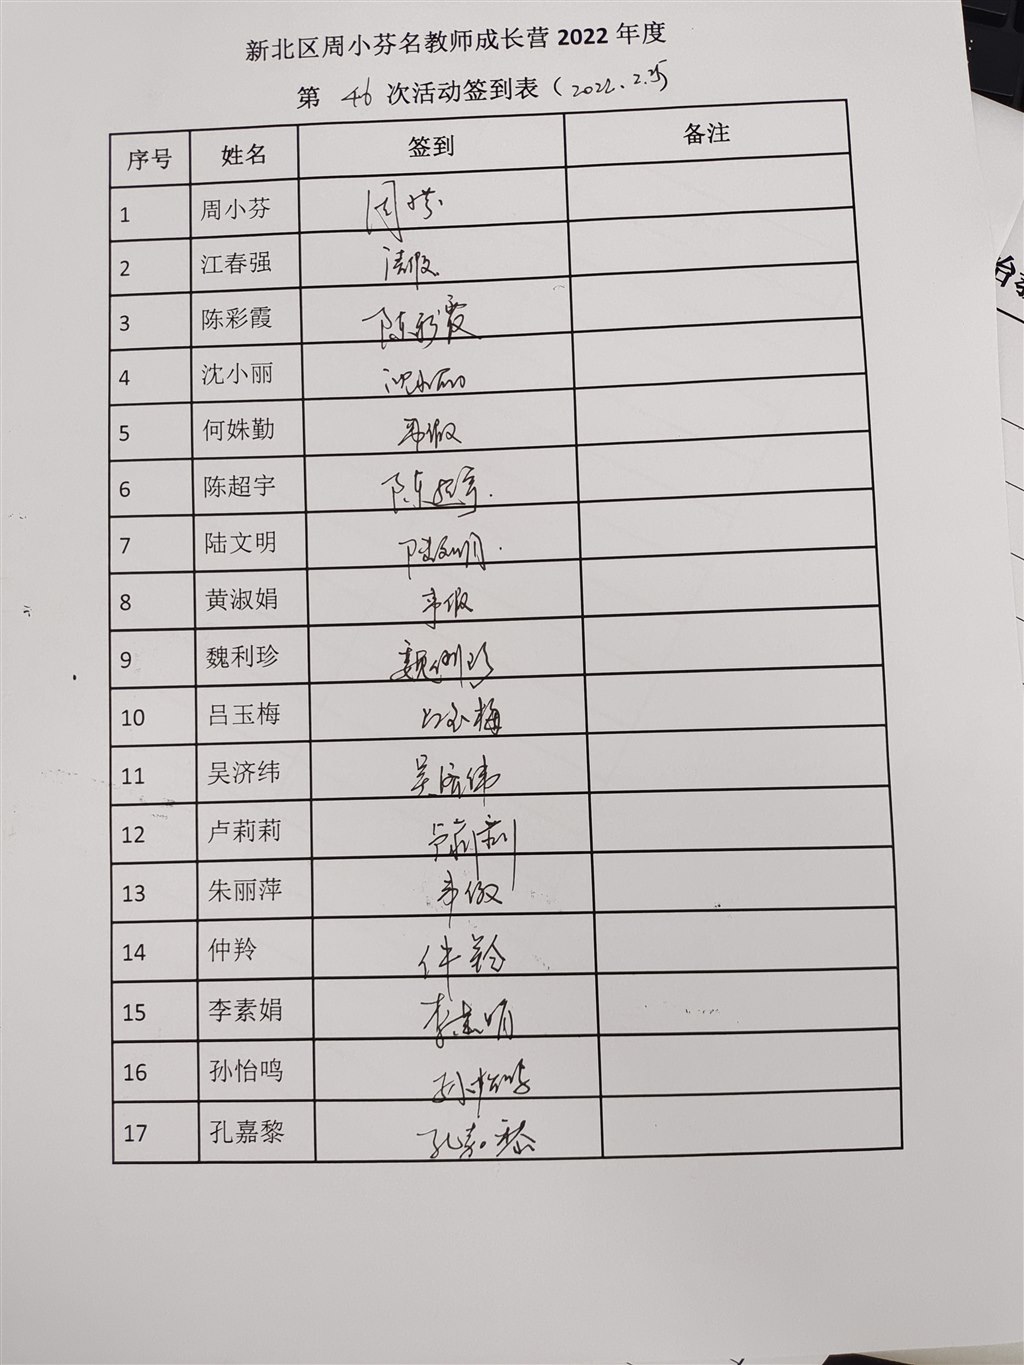 新北区周小芬名教师成长营 2022 年度
第 46 次活动签到表（2022.2.25）
序号 姓名 签到 备注
1 周小芬 周小芬
2 江春强 请假
3 陈彩霞 陈彩霞
4 沈小丽 沈小丽
5 何姝勤 事假
6 陈超宇 陈超宇
7 陆文明 陆文明
8 黄淑娟 事假
9 魏利珍 魏利珍
10 吕玉梅 吕玉梅
11 吴济纬 吴济纬
12 卢莉莉 卢莉莉
13 朱丽萍 事假
14 仲羚 仲羚
15 李素娟 李素娟
16 孙怡鸣 孙怡鸣
17 孔嘉黎 孔嘉黎